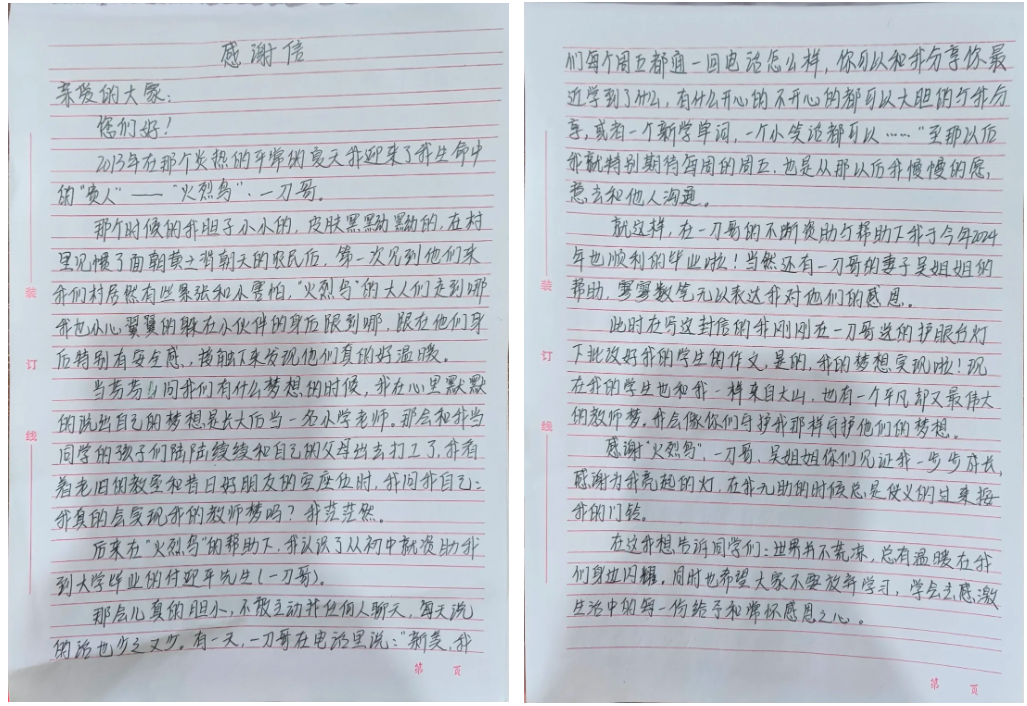 感谢信
亲爱的大家：
您们好！
2013年在那个炎热的平常的夏天我迎来了我生命中
的“贵人”——“火烈鸟”、一刀哥。
那个时候的我胆子小小的，皮肤黑黑黝黝的，在村
里见惯了面朝黄土背朝天的农民后，第一次见到他们来
我们村居然有些紧张和小害怕，“火烈鸟”的大人们走到哪
我也小心翼翼的躲在小伙伴的身后跟到哪，跟在他们身
后特别有安全感，接触下来发现他们真的好温暖。
当芳芳问我们有什么梦想的时候，我在心里默默
的说出自己的梦想是长大后当一名小学老师。那会和我当
同学的孩子们陆陆续续和自己的父母出去打工了，我看
着老旧的教室和昔日好朋友的空座位时，我问我自己：
我真的会实现我的教师梦吗？我茫茫然。
后来在“火烈鸟”的帮助下，我认识了从初中就资助我
到大学毕业的付迎平先生（一刀哥）。
那会儿真的胆小，不敢主动并任何人聊天，每天说
的话也少之又少。有一天，一刀哥在电话里说：“新美，我
们每个周五都通一回电话怎么样，你可以和我分享你最
近学到了什么，有什么开心的不开心的都可以大胆的个我分
享，或者一个新学单词，一个小笑话都可以……”至那以后
我就特别期待每周的周五，也是从那以后我慢慢的愿
意去和他人沟通。
就这样，在一刀哥的不断资助个帮助下我于今年2024
年也顺利的毕业啦！当然还有一刀哥的妻子吴姐姐的
帮助，寥寥数笔无以表达我对他们的感恩。
此时在写这封信的我刚刚在一刀哥送的护眼台灯
下批改好我的学生的作文，是的，我的梦想实现啦！现
在我的学生也和我一样来自大山，也有一个平凡却又最伟大
的教师梦。我会像你们守护我那样守护他们的梦想。
感谢“火烈鸟”、一刀哥、吴姐姐你们见证我一步步成长，
感谢为我亮起的灯，在我无助的时候总是仗义的过来按
我的门铃。
在这我想告诉同学们：世界并不荒凉，总有温暖在我
们身边闪耀。同时也希望大家不要放弃学习，学会去感激
生活中的每一份给予和常怀感恩之心。
装
订
线
第 页
装
订
线
第 页